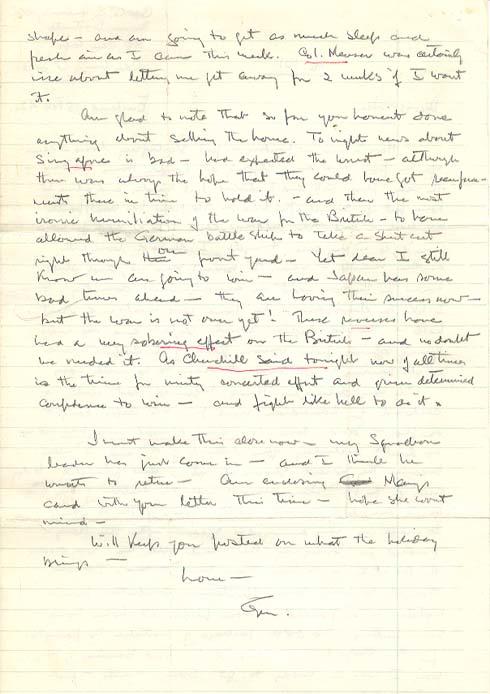 shape - and am going to get as much sleep and
fresh air as I can this week. Col. Mauser was certainly
nice about letting me get away for 2 weeks if I want
it.
Am glad to note that so far you haven't done
anything about selling the home. Tonight news about
Singapore is bad - had expected the worst - although
there was always the hope that they could have got reinforce-
ments there in time to hold it. - and then the most
ironic humiliation of the war for the British - to have
allowed the German battleships to take a short cut
right through our front yard - Yet dear I still
know we are going to win - and Japan has some
bad times ahead - they are having their success now -
but the war is not over yet! These reverses have
had a very sobering effect on the British - and no doubt
we needed it. As Churchill said tonight now of all times
is the time for unity concerted effort and grim determined
confidence to win - and fight like hell to do it.
I must make this close now - my Squadron
leader has just come in - and I think he
wants to retire - Am enclosing Mary's
card with your letter this time - hope she wont
mind -
Will keep you posted on what the holiday
brings -
Love -